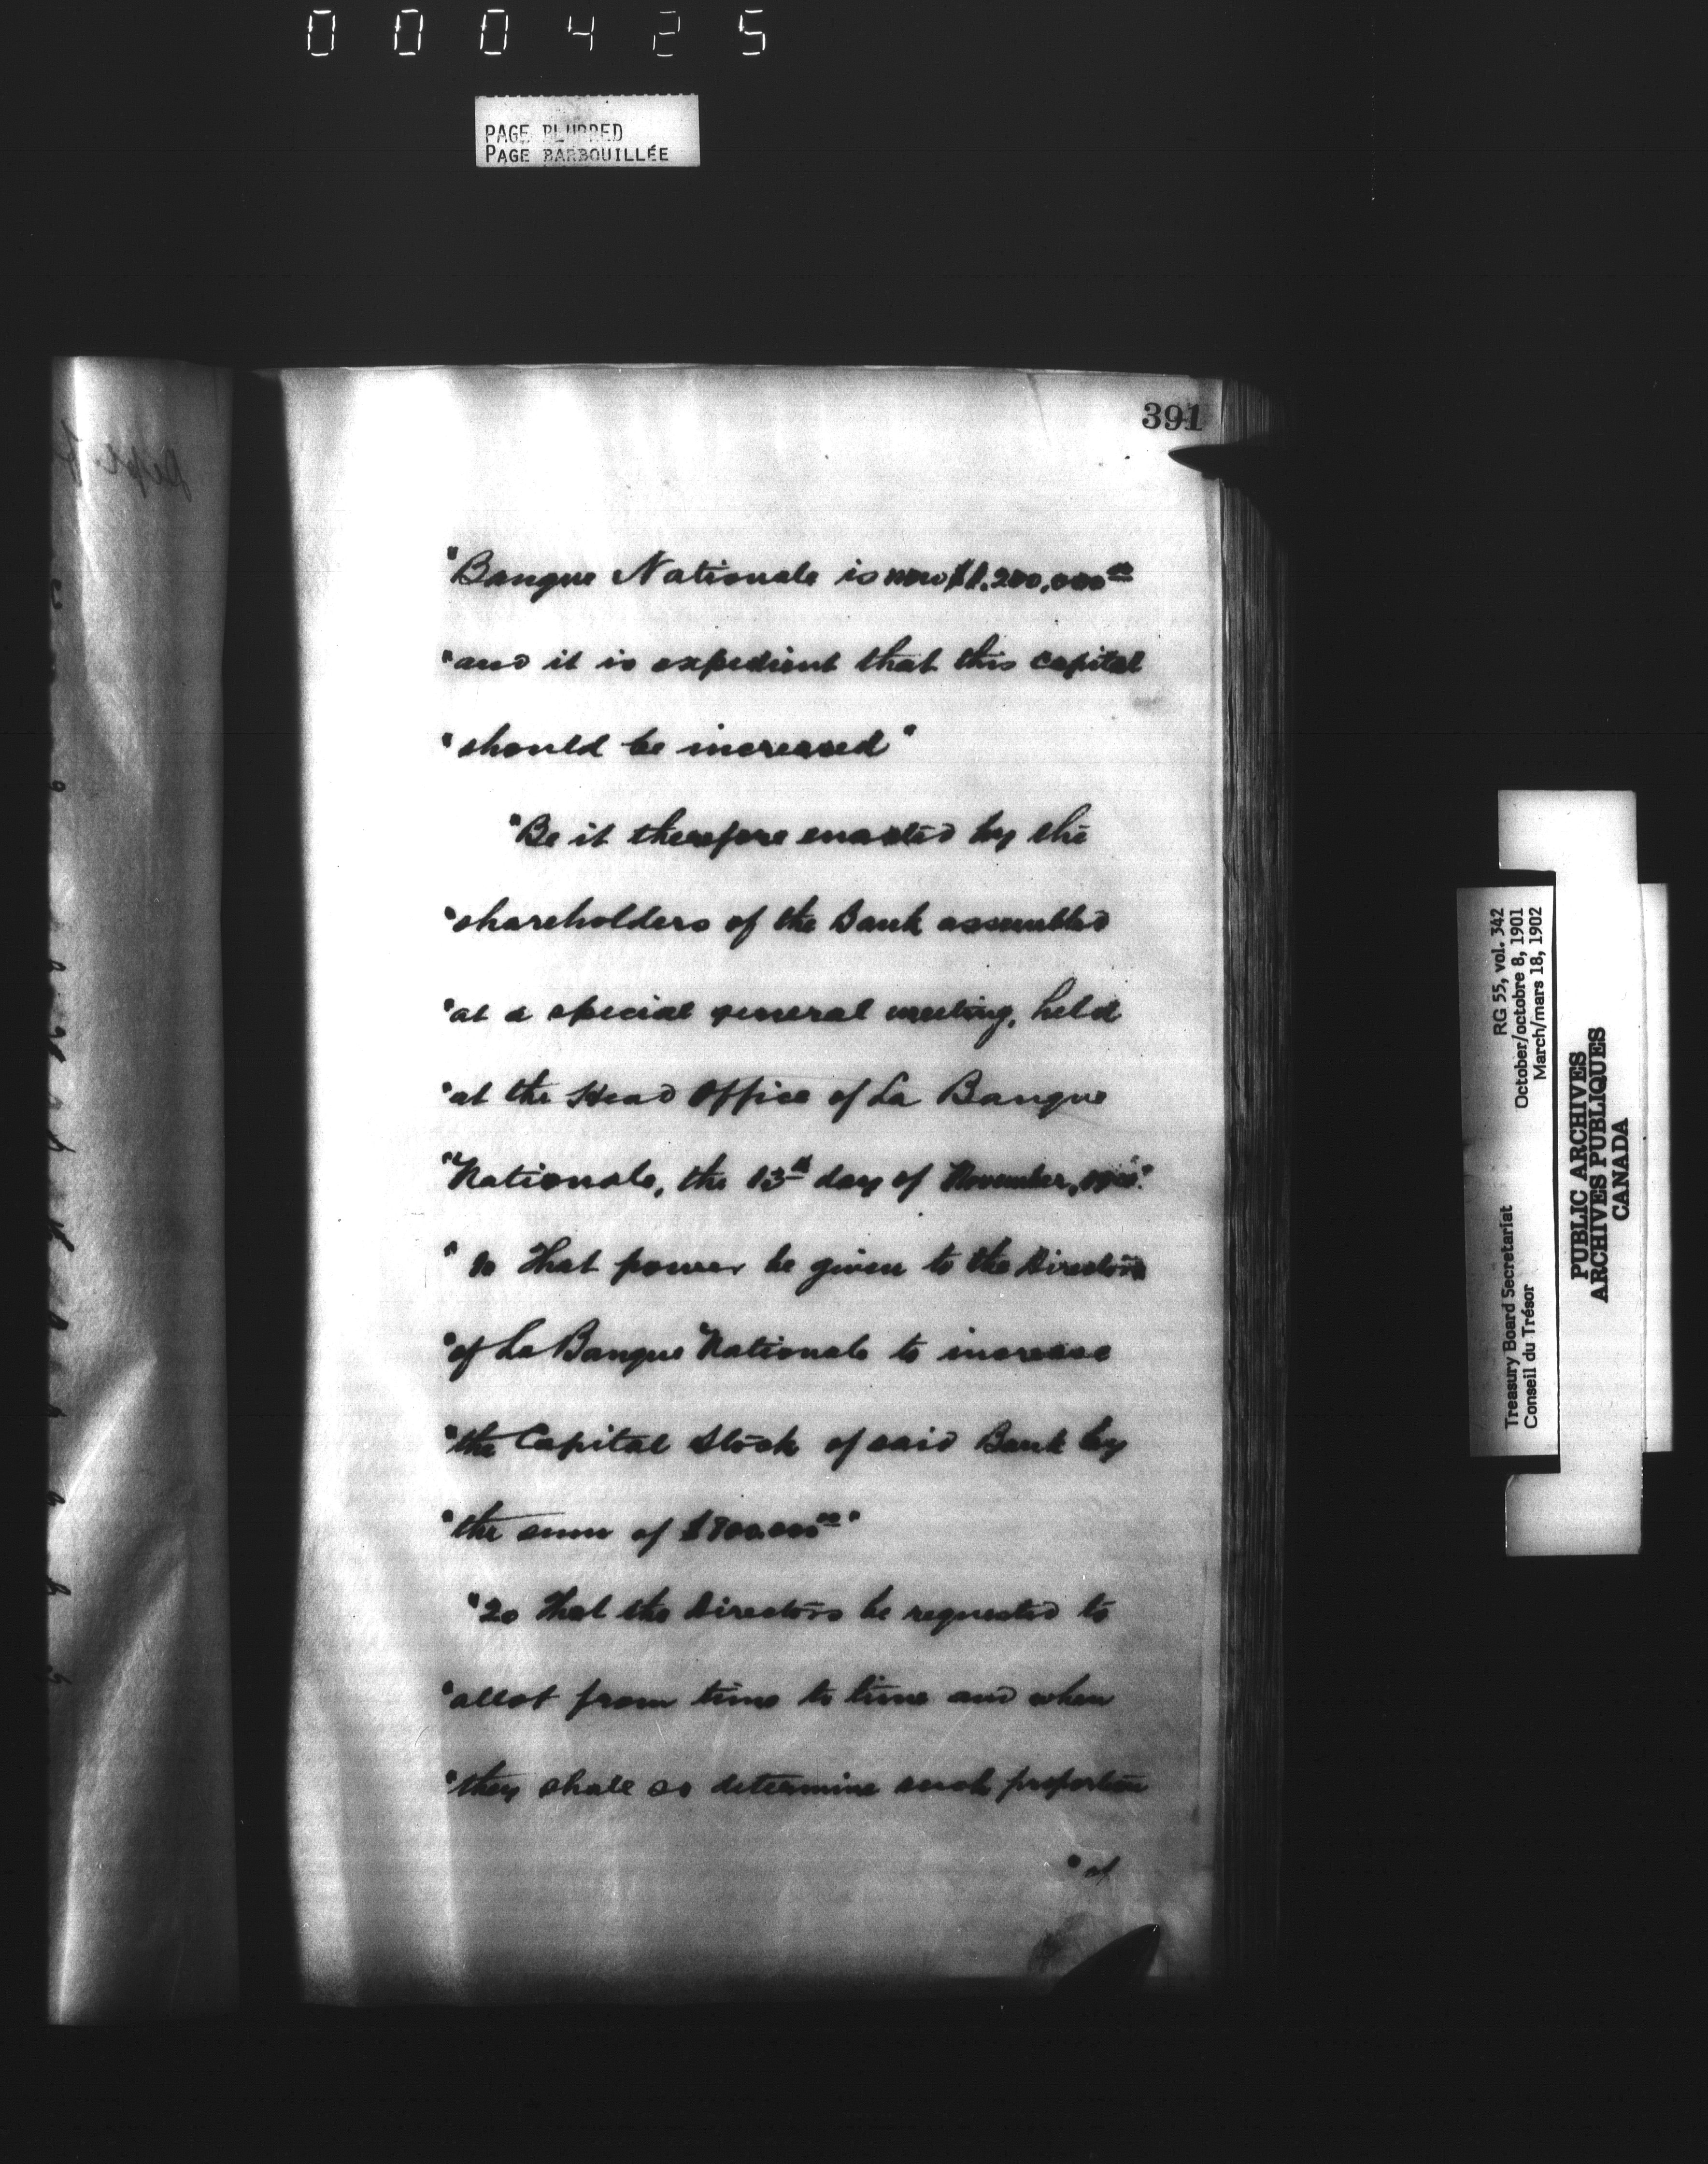 000425
PAGE BLURRED
PAGE BARBOUILLÉE
391
"Banque Nationale is now $1,200,000 00
"and it is expedient that this capital
"should be increased"
"Be it therefore enacted by the
"shareholders of the Bank assembled
"at a special general meeting, held
"at the Head Office of La Banque
"Nationale, the 13th day of November,
" 1o That power be given to the Directors
"of La Banque Nationale to increase
"the Capital Stock of said Bank by
"the sum of $800,000 00"
"2o That the Directors be requested to
"allot from time to time and when
"they shall so determine such proportion
"of
Treasury Board Secretariat RG 55, vol. 342
Conseil du Trésor October/octobre 8, 1901
March/mars 18, 1902
PUBLIC ARCHIVES
ARCHIVES PUBLIQUES
CANADA